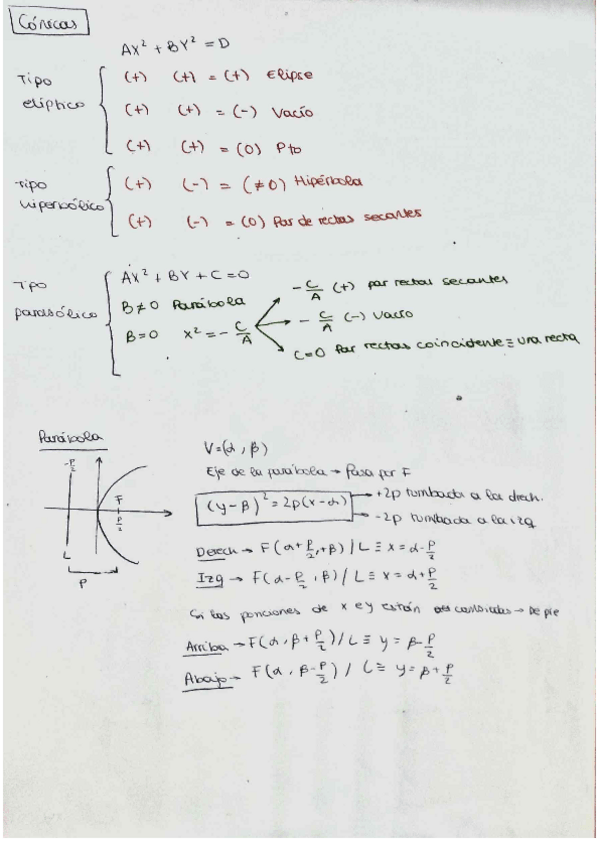 Cónicas
AX² + BY² = D
Tipo elíptico
(+) (+) = (+) Elipse
(+) (+) = (-) Vacío
(+) (+) = (0) Pto
Tipo hiperbólico
(+) (-) = (≠0) Hipérbola
(+) (-) = (0) Par de rectas secantes
Tipo parabólico
AX² + BY + C = 0
B≠0 Parábola
B=0 x² = -C/A
-C/A (+) par rectas secantes
-C/A (-) vacío
C=0 Par rectas coincidente ≡ una recta
Parábola
-P/2
F
P/2
L
P
V=(α, β)
Eje de la parábola → Pasa por F
(y-β)² = 2p(x-α)
+2p tumbada a la drech.
-2p tumbada a la izq
Derech → F(α+P/2, +β) / L ≡ x = α-P/2
Izq → F(α-P/2, β) / L ≡ x = α+P/2
Si las posiciones de x e y están cambiadas → De pie
Arriba → F(α, β+P/2) / L ≡ y = β-P/2
Abajo → F(α, β-P/2) / L ≡ y = β+P/2